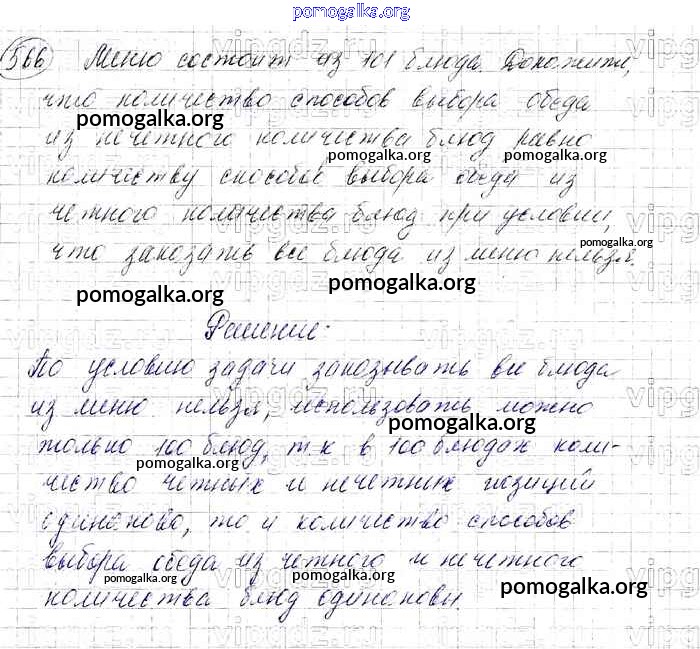 pomogalka.org
566 Меню состоит из 101 блюда. Докажите,
что количество способов выбора обеда
pomogalka.org
из нечетного количества блюд равно
pomogalka.org pomogalka.org
количеству способов выбора обеда из
четного количества блюд при условии,
pomogalka.org
что заказать все блюда из меню нельзя.
pomogalka.org pomogalka.org
Решение:
По условию задачи заказывать все блюда
из меню нельзя, использовать можно
pomogalka.org
только 100 блюд, т.к в 100 блюдах коли-
pomogalka.org
чество четных и нечетных позиций
одинаково, то и количество способов
выбора обеда из четного и нечетного
pomogalka.org pomogalka.org pomogalka.org
количества блюд одинаковы